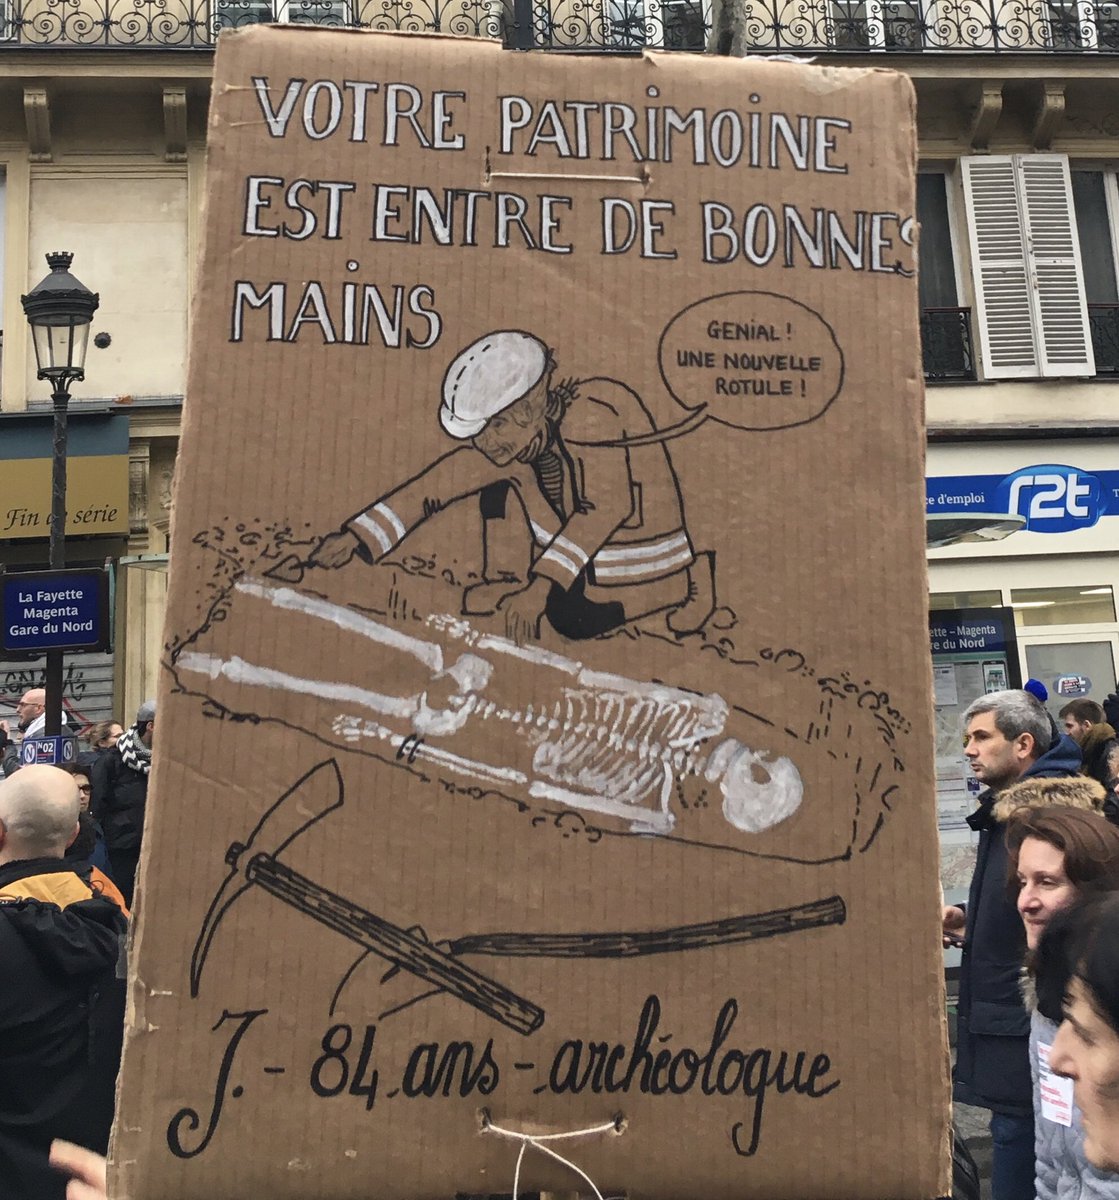 VOTRE PATRIMOINE
EST ENTRE DE BONNES
MAINS
GENIAL !
UNE NOUVELLE
ROTULE !
J. - 84 ans - archéologue
Fin de série
La Fayette
Magenta
Gare du Nord
N02
ce d'emploi
r2t
ette – Magenta
du Nord
r2t